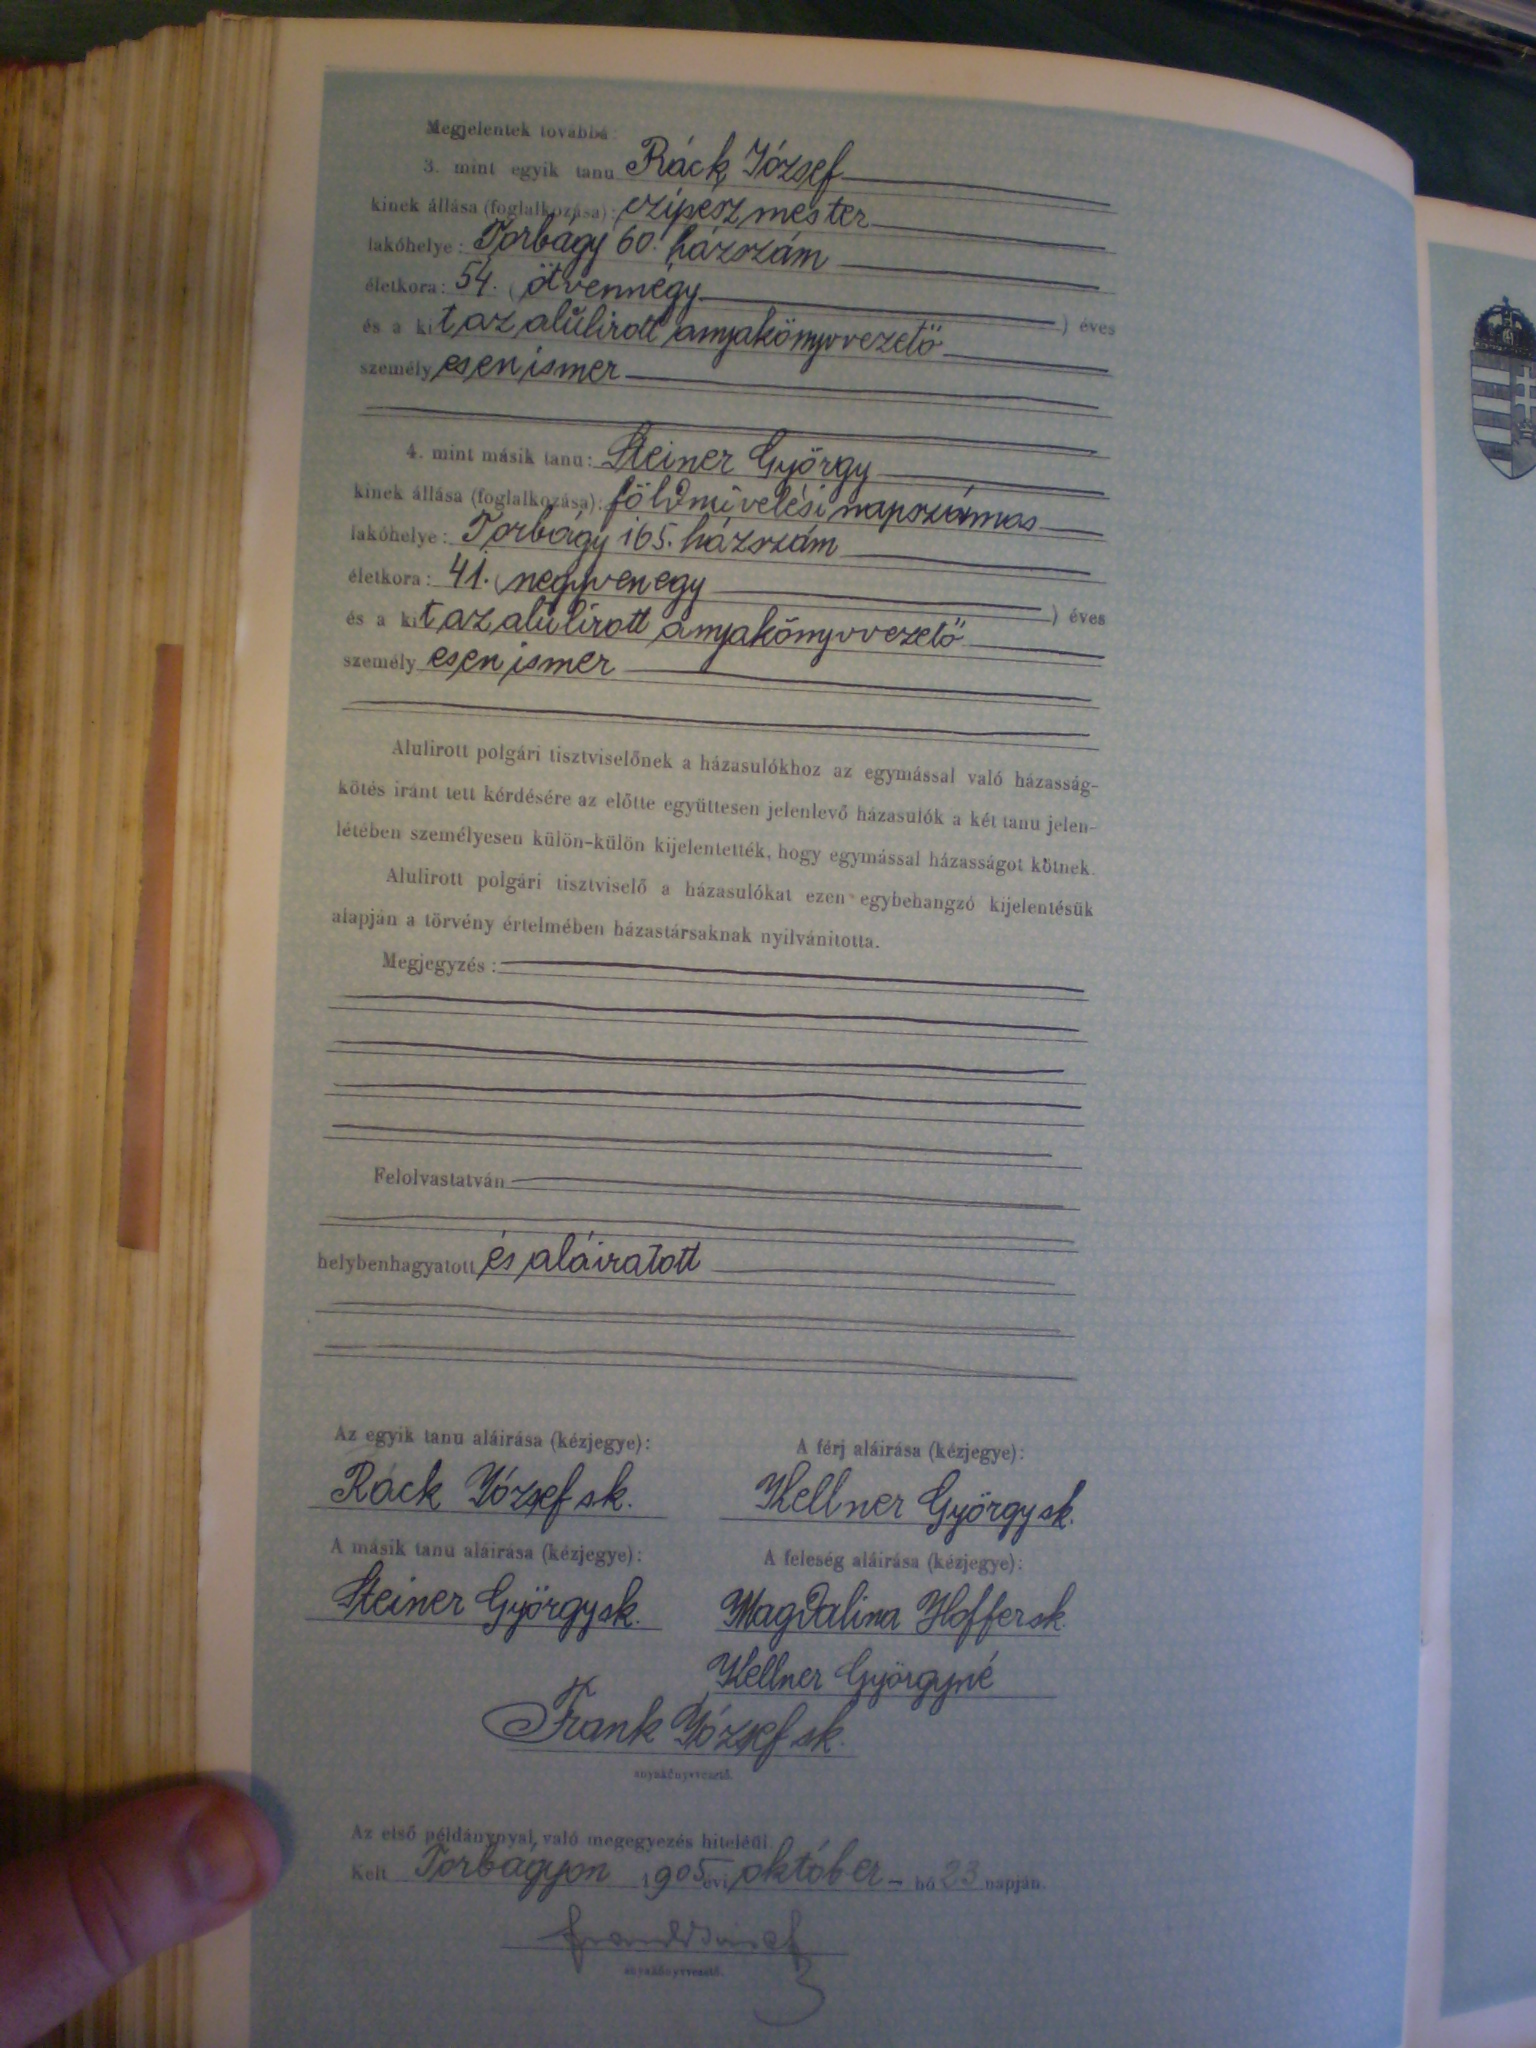 Megjelentek továbbá:
3. mint egyik tanu Ráck József
kinek állása (foglalkozása): czipész mester
lakóhelye: Torbágy 60. házszám
életkora: 54. (ötvennégy ) éves
és a kit az alúlirott anyakönyvvezető
személyesen ismer
4. mint másik tanu: Steiner György
kinek állása (foglalkozása): földmüvelési napszámos
lakóhelye: Torbágy 165. házszám
életkora: 41. (negyvenegy ) éves
és a kit az alúlirott anyakönyvvezető
személyesen ismer
Alulirott polgári tisztviselőnek a házasulókhoz az egymással való házasság-
kötés iránt tett kérdésére az előtte együttesen jelenlevő házasulók a két tanu jelen-
létében személyesen külön-külön kijelentették, hogy egymással házasságot kötnek.
Alulirott polgári tisztviselő a házasulókat ezen egybehangzó kijelentésük
alapján a törvény értelmében házastársaknak nyilvánitotta.
Megjegyzés:
Felolvastatván
helybenhagyatott és aláiratott
Az egyik tanu aláirása (kézjegye):
Ráck József sk.
A férj aláirása (kézjegye):
Kellner György sk.
A másik tanu aláirása (kézjegye):
Steiner György sk.
A feleség aláirása (kézjegye):
Magdalina Hoffer sk.
Kellner Györgyné
Frank József sk.
anyakönyvvezető.
Az első példánynyal való megegyezés hiteléül
Kelt Torbágyon 1905 évi október hó 23 napján.
Frank József
anyakönyvvezető.